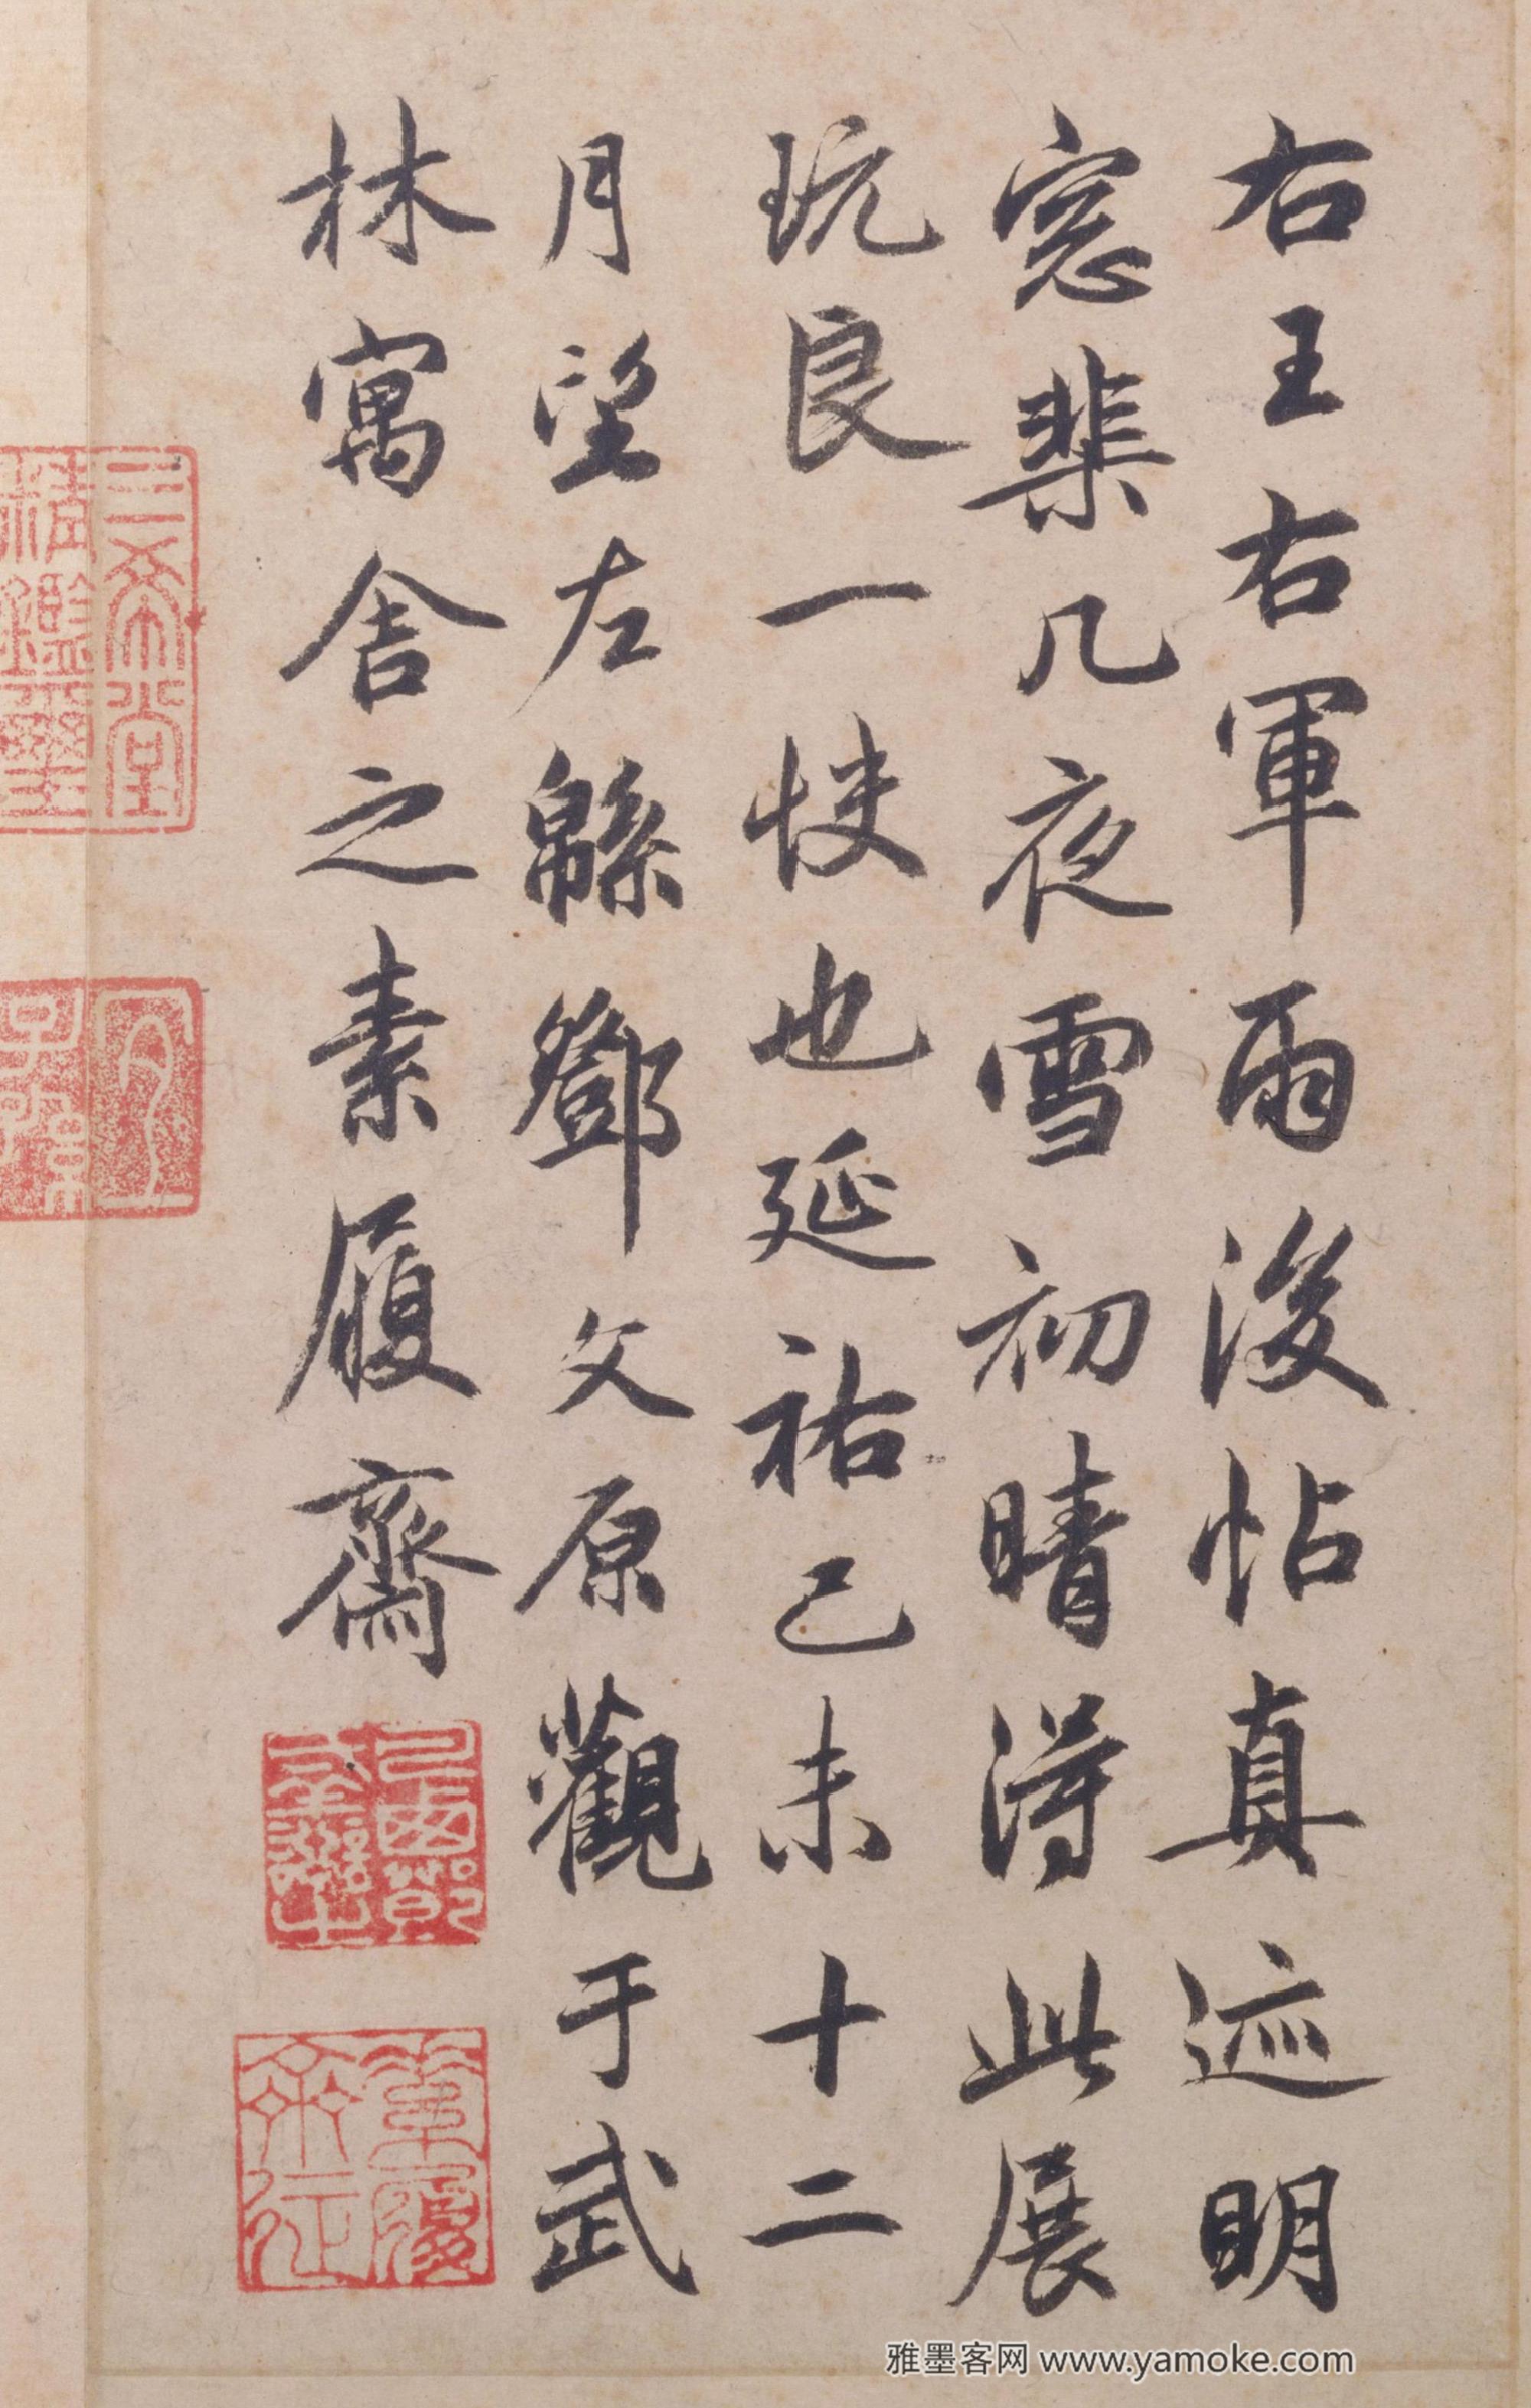 右王右軍雨後帖真迹明
窓棐几夜雪初晴得此展
玩良一快也延祐己未十二
月望左緜鄧文原觀于武
林寓舍之素履齋
三希堂
精鑑璽
宜
子孫
素履
齋
雅墨客网 www.yamoke.com